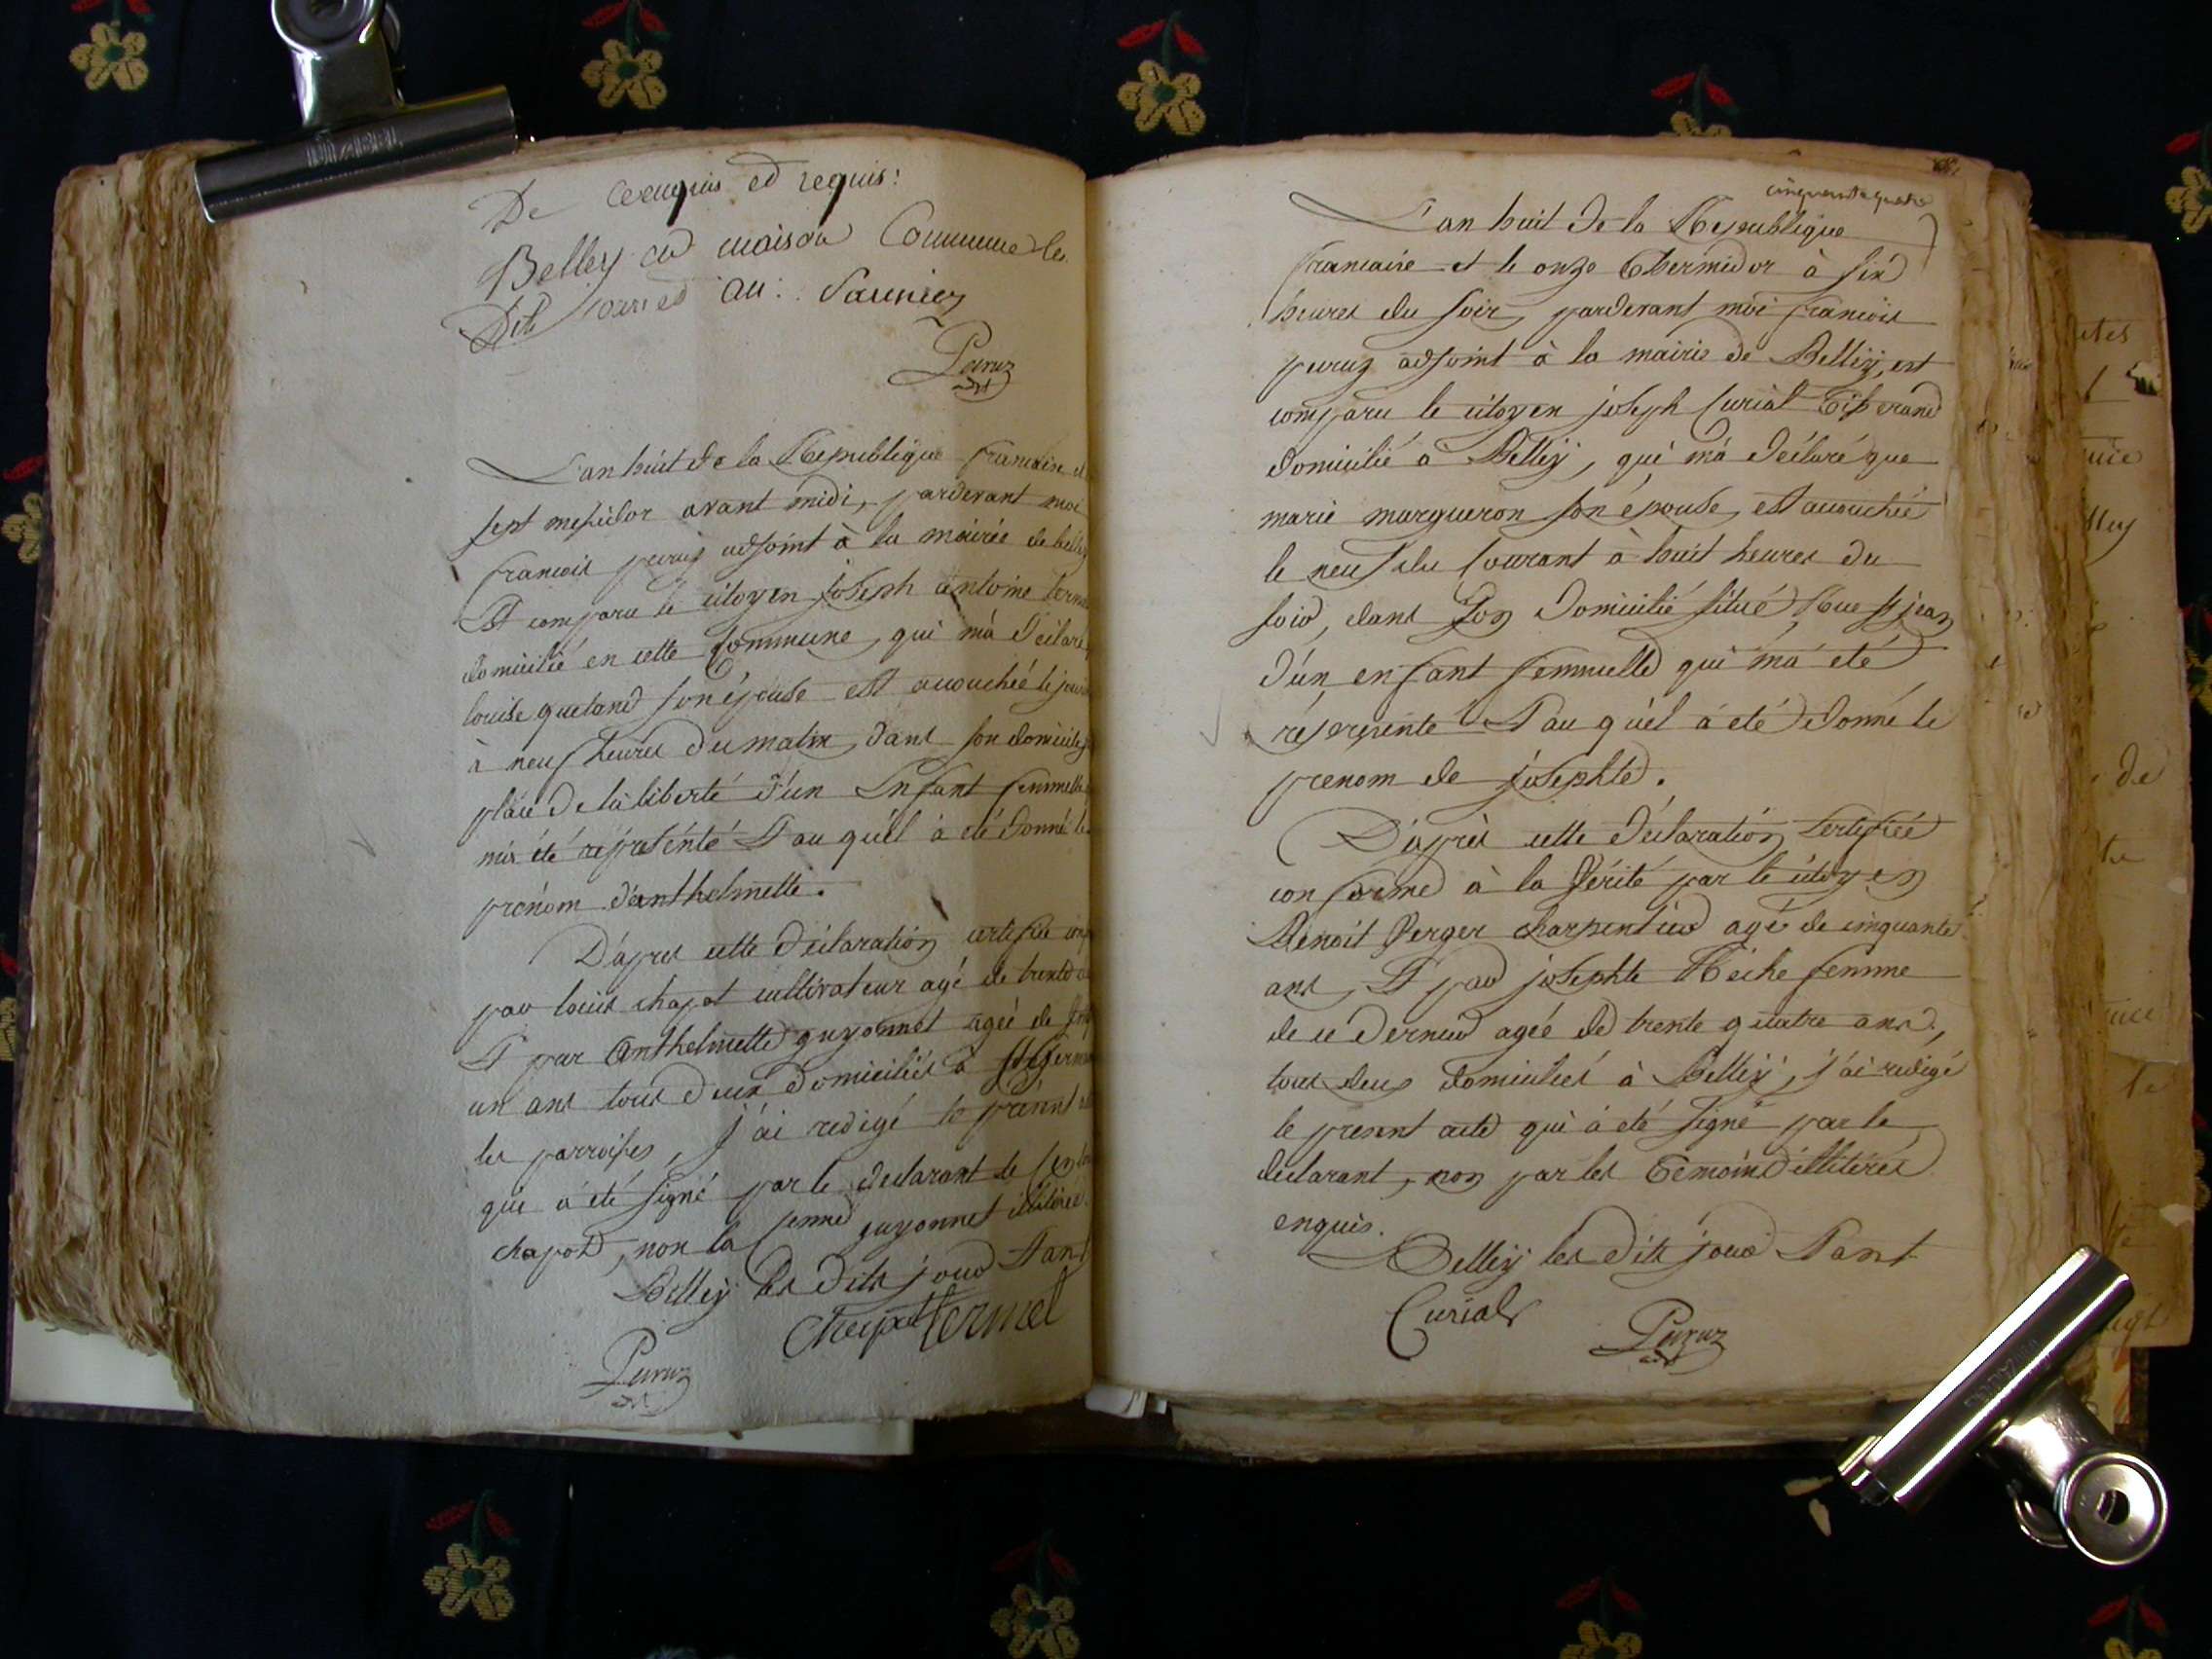 De ce enquis et requis:
Belley en maison Commune les
Dits jour et an: Saunier
Peruz
L'an huit de la Republique francaise et
sept messidor avant midi, pardevant moi
francois peruz adjoint à la mairie de belley
Est comparu le citoyen joseph antoine
domicilié en cette commune, qui m'a déclaré
louise son épouse est accouchée le jour
à neuf heures du matin, dans son domicile
place de la liberté d'un Enfant femmelle
m'a été réprésénté Et au quel à été donné le
prénom d'anthelmette.
D'apres cette déclaration certifiée
par louis chapot cultivateur agé de trente
Et par Anthelmette guyonnet agée de
un ans tous deux domiciliés à St germain
les parroisses, j'ai redigé le present
qui à été signé par le declarant le
chapot, non la femme guyonnet illitérée.
Belley les dits jour Et ant
Chapot fermel
Peruz
cinquante quatre
L'an huit de la Republique
francaise et le onze thermidor à six
heures du soir, pardevant moi francois
peruz adjoint à la mairie de Belley, est
comparu le citoyen joseph Curial
domicilié à Belley, qui m'a déclaré que
marie murgueron son épouse, est accouchée
le neuf du courant à huit heures du
soir, dans son domicilié situé Rue St jean
d'un enfant femmelle qui m'a été
réprésenté Et au quel à été donné le
prenom de josephte.
D'après cette déclaration certifiée
conforme à la Vérité par le citoyen
Benoit Verger charpentier agé de cinquante
ans, Et par josephte femme
de ce dernier agée de trente quatre ans,
tous deux domiciliés à Belley, j'ai redigé
le present acte qui à été signé par le
declarant, non par les temoins illitérés
enquis.
Belley les dits jour Et ant
Curial
Peruz